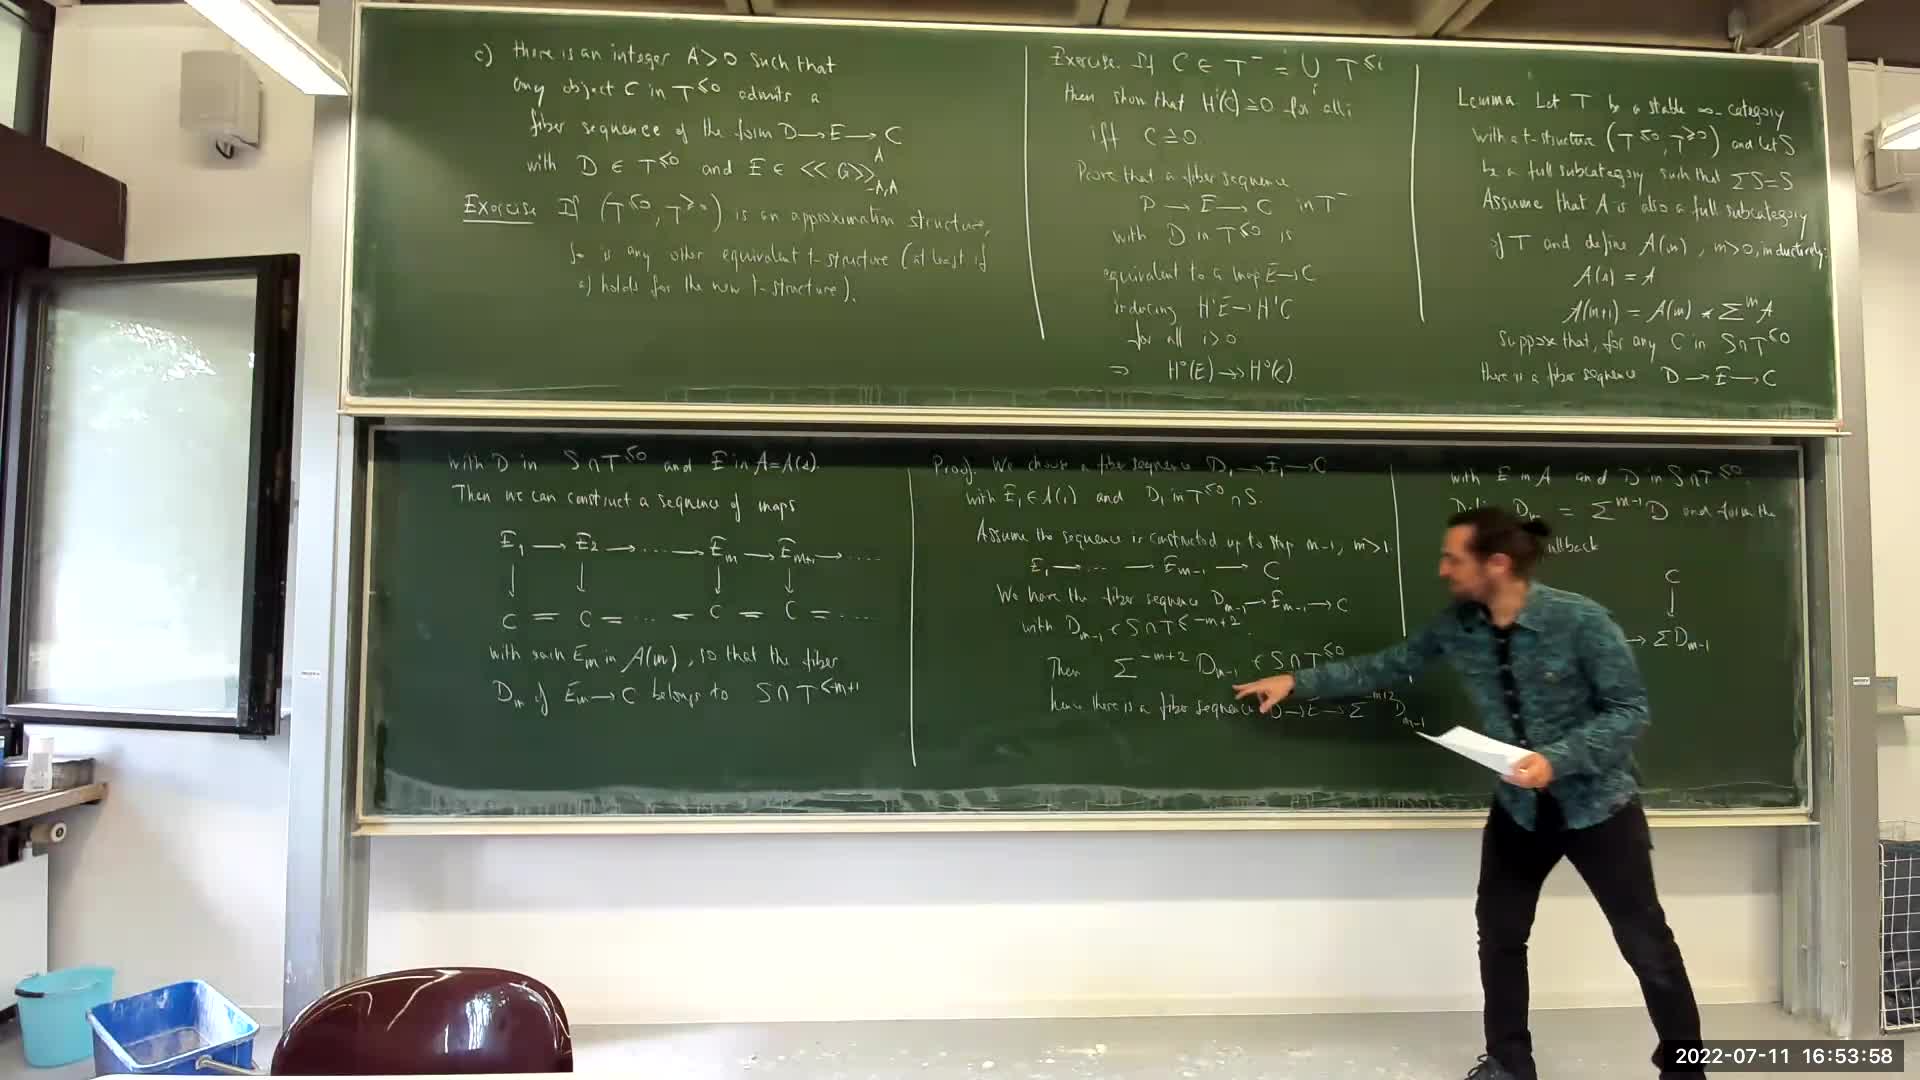 c) there is an integer A>0 such that
any object C in T^{≤0} admits a
fiber sequence of the form D→E→C
with D ∈ T^{≤0} and E ∈ <<G>>^A_{-A,A}
Exercise If (T^{≤0}, T^{≥0}) is an approximation structure,
so is any other equivalent t-structure (at least if
c) holds for the new t-structure).
Exercise. If C ∈ T^- = ∪ T^{≤i}
then show that H^i(C) ≅ 0 for all i
iff C ≅ 0.
Prove that a fiber sequence
D → E → C in T^-
with D in T^{≤0} is
equivalent to a map E→C
inducing H^iE → H^iC
for all i>0
⇒ H^0(E) ↠ H^0(C)
Lemma Let T be a stable ∞-category
with a t-structure (T^{≤0}, T^{≥0}) and let S
be a full subcategory such that ΣS=S
Assume that A is also a full subcategory
of T and define A(m), m>0, inductively:
A(1) = A
A(m+1) = A(m) * Σ^m A
Suppose that, for any C in S∩T^{≤0}
there is a fiber sequence D → E → C
with D in S∩T^{≤0} and E in A=A(1).
Then we can construct a sequence of maps
E_1 → E_2 → ... → E_m → E_{m+1} → ....
↓ ↓ ↓ ↓
C = C = ... = C = C = ....
with each E_m in A(m), so that the fiber
D_m of E_m → C belongs to S∩T^{≤-m+1}
Proof. We choose a fiber sequence D_1 → E_1 → C
with E_1 ∈ A(1) and D_1 in T^{≤0} ∩ S.
Assume the sequence is constructed up to step m-1, m>1.
E_1 → ... → E_{m-1} → C
We have the fiber sequence D_{m-1} → E_{m-1} → C
with D_{m-1} ∈ S∩T^{≤-m+2}.
Then Σ^{-m+2} D_{m-1} ∈ S∩T^{≤0}
hence there is a fiber sequence D→E→Σ^{-m+2} D_{m-1}
with E in A and D in S∩T^{≤0}.
D_m = Σ^{m-1} D and form the
C
↓
→ ΣD_{m-1}
2022-07-11 16:53:58